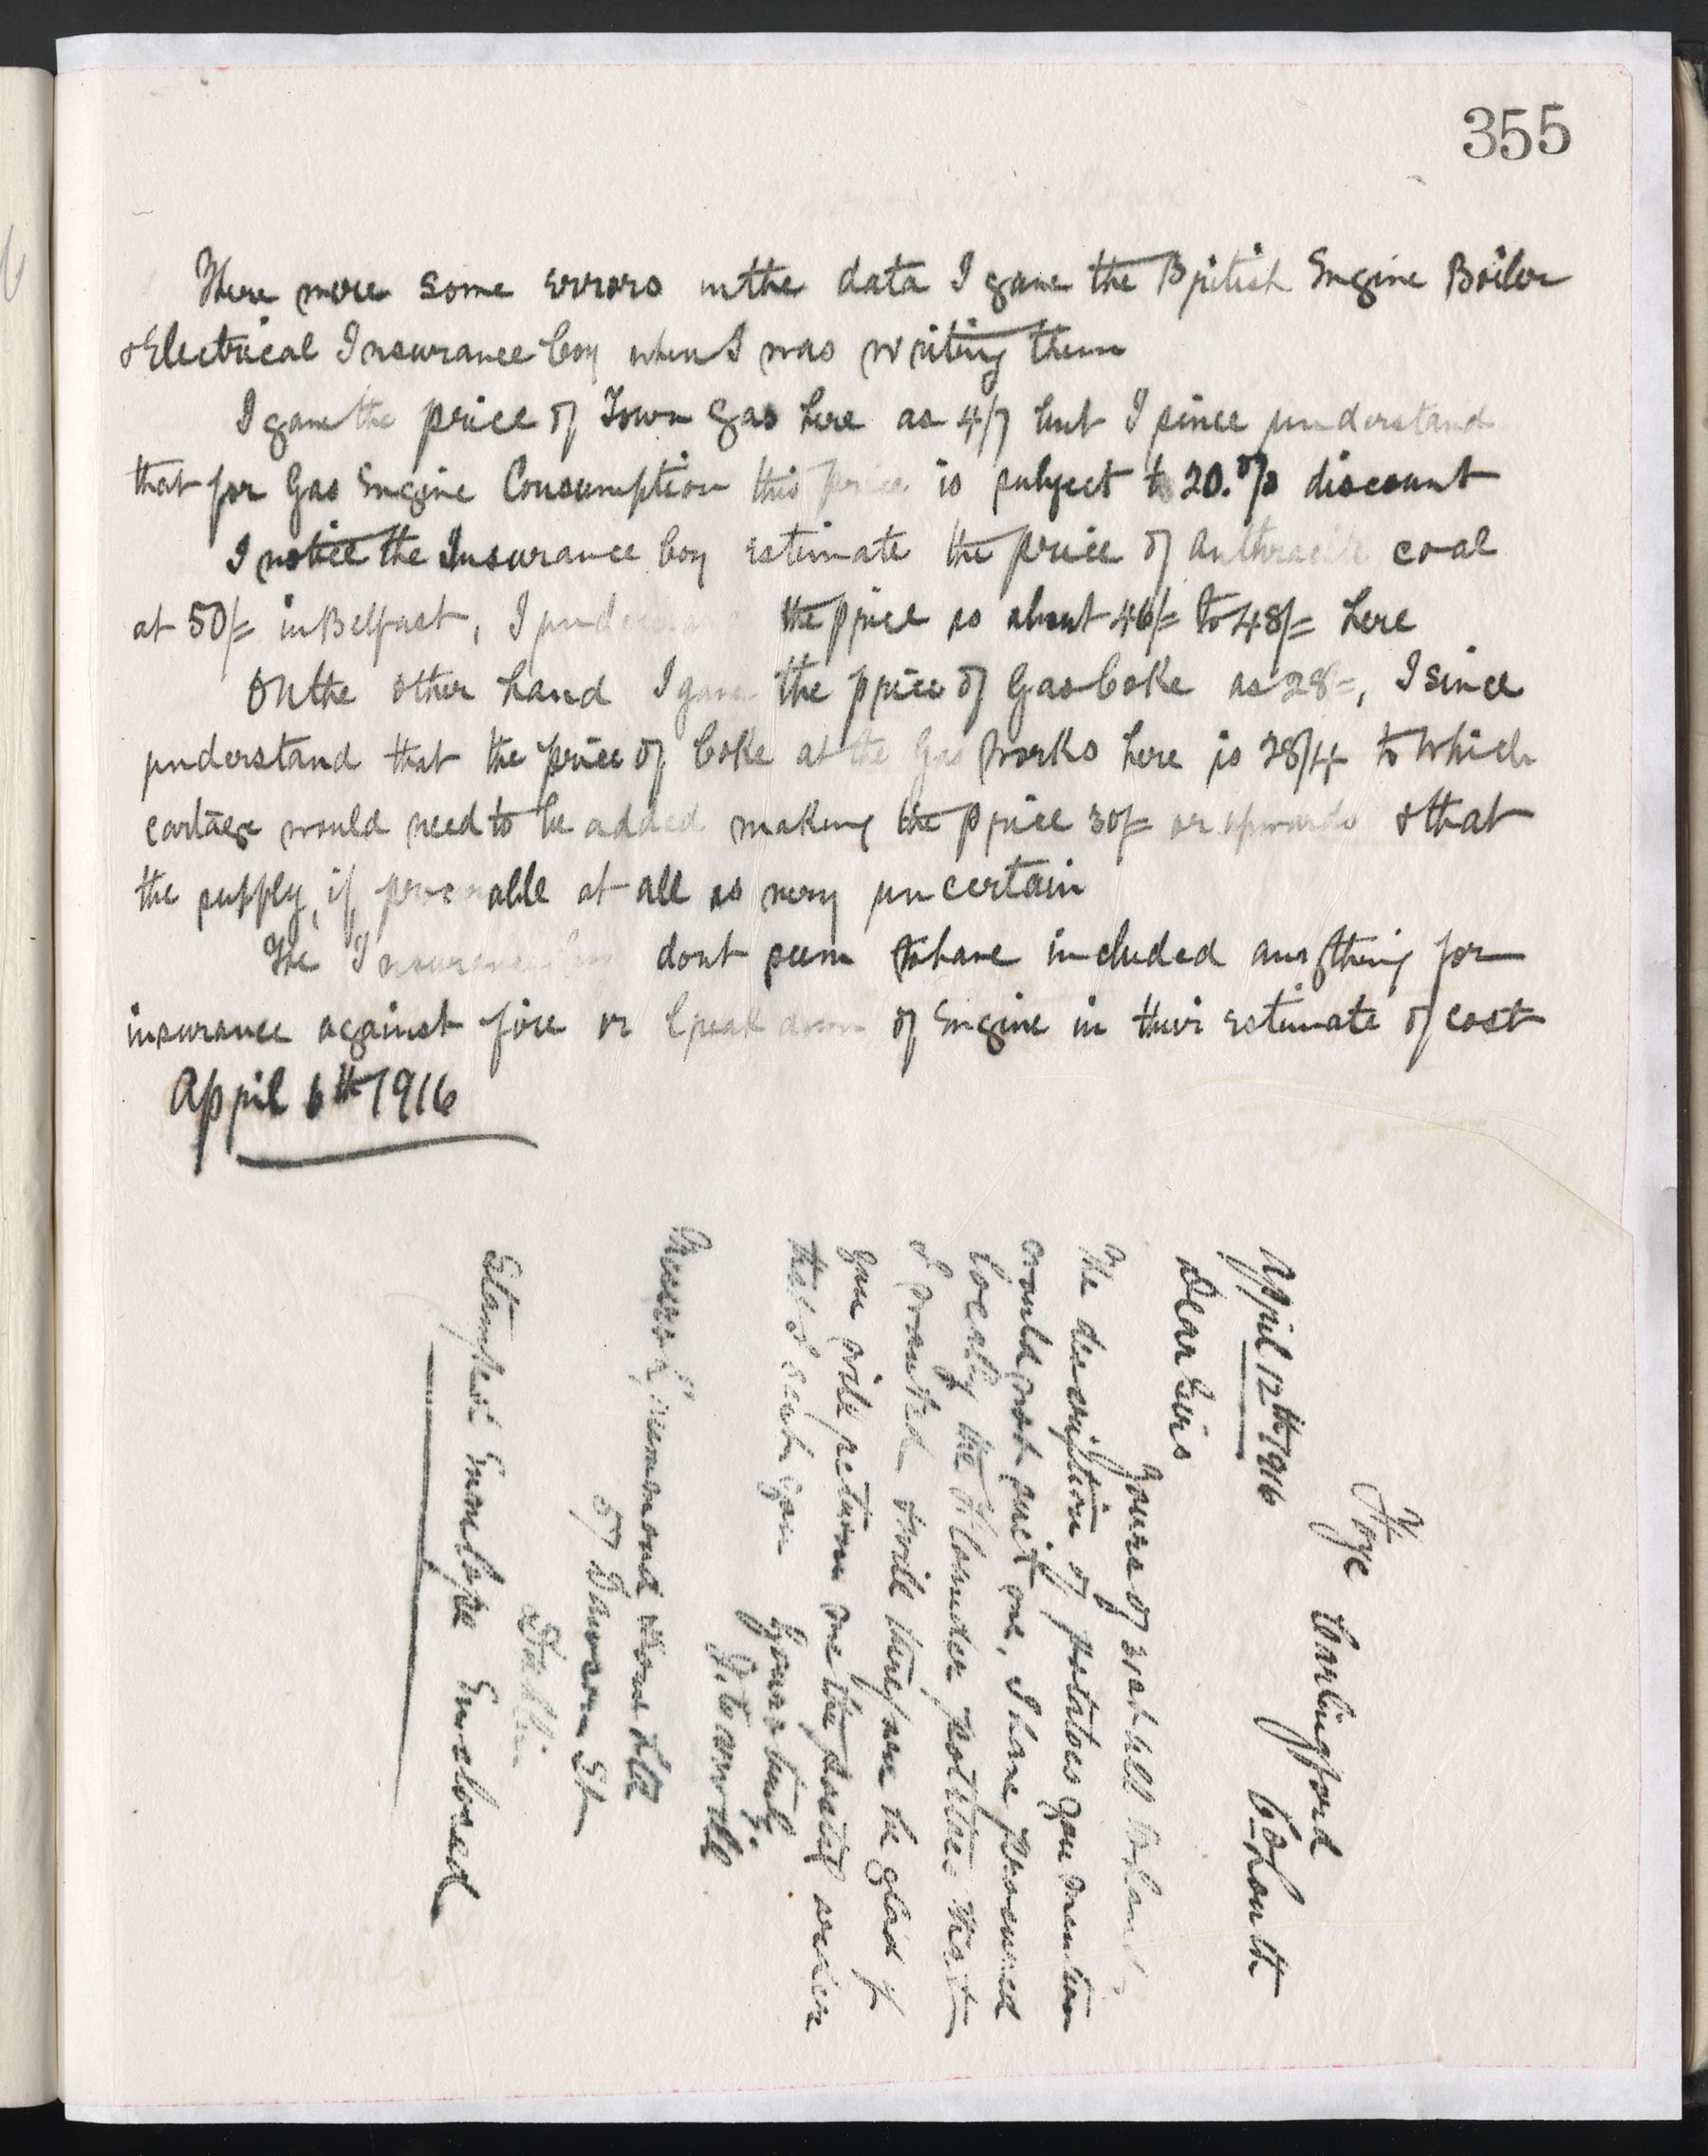 355
There were some errors in the data I gave the British Engine Boiler
& Electrical Insurance Coy when I was writing them
I gave the price of Town Gas here as 4/7 but I since understand
that for Gas Engine Consumption this price is subject to 20.% discount
I notice the Insurance Coy estimate the price of anthracite coal
at 50/= in Belfast, I understand the price is about 46/= to 48/= here
On the other hand I gave the price of Gas Coke as 28=, I since
understand that the price of Coke at the Gas Works here is 28/4 to which
cartage would need to be added making the price 30/= or upwards & that
the supply, if procurable at all is very uncertain
The Insurance Coy dont seem to have included anything for
insurance against fire or break down of Engine in their estimate of cost
April 6th 1916
Carlingford
Co Louth
April 12th 1916
Dear Sirs
Yours of
The description of potatoes you mention
would not suit me, I have procured
locally the potatoes that
I wanted & will therefore be glad if
you will return me the postal order
that I sent you
Yours truly
Messrs Drummond & Sons Ltd
57 Dawson St
Dublin
Stamped Envelope Enclosed